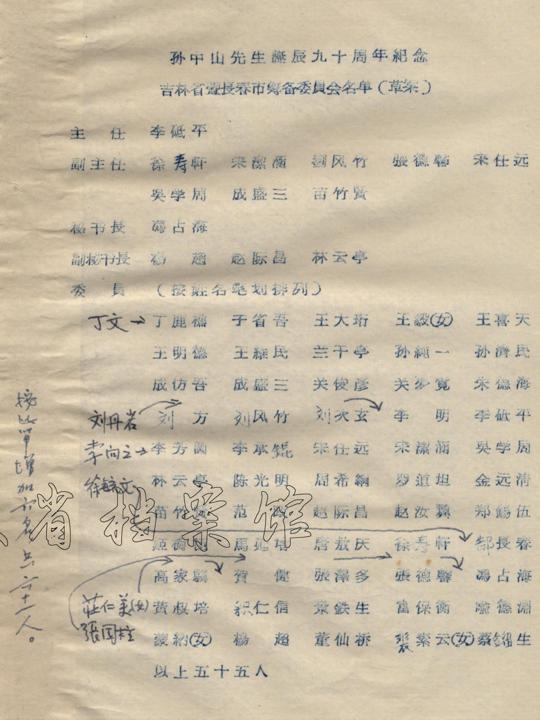 孙中山先生誕辰九十周年紀念
吉林省暨長春市筹备委員会名单（草案）
主 任 李砥平
副主任 徐寿軒 宋潔涵 刘风竹 張德馨 宋任远
吳学周 成盛三 苗竹賢
秘书長 馮占海
副秘书長 楊 超 赵际昌 林云亭
委 員 （按姓名笔划排列）
丁文 丁鹿 于省吾 王大珩 王毅(女) 王喜天
王明德 王 民 兰干亭 孙 一 孙济民
成仿吾 成盛三 关俊彦 关梦覚 朱德海
刘丹岩 刘 方 刘风竹 刘 玄 李 明 李砥平
李向之 李芳 李承锟 宋任远 宋潔涵 吳学周
徐 文 林云亭 陈光明 周希 坦 金远清
苗竹賢 范 政 赵际昌 赵汝 郑 伍
馬 唐敖庆 徐寿軒 郜長春
高家 賀 健 張澤多 張德馨 馮占海
莊仁 (女) 黄叔培 仁信 葉鉄生 富保衡 喻德渊
張国柱 (女) 楊 超 董仙桥 裴紫云(女) 蔡 生
以上五十五人
按此單增加六名共六十一人。
省档案馆